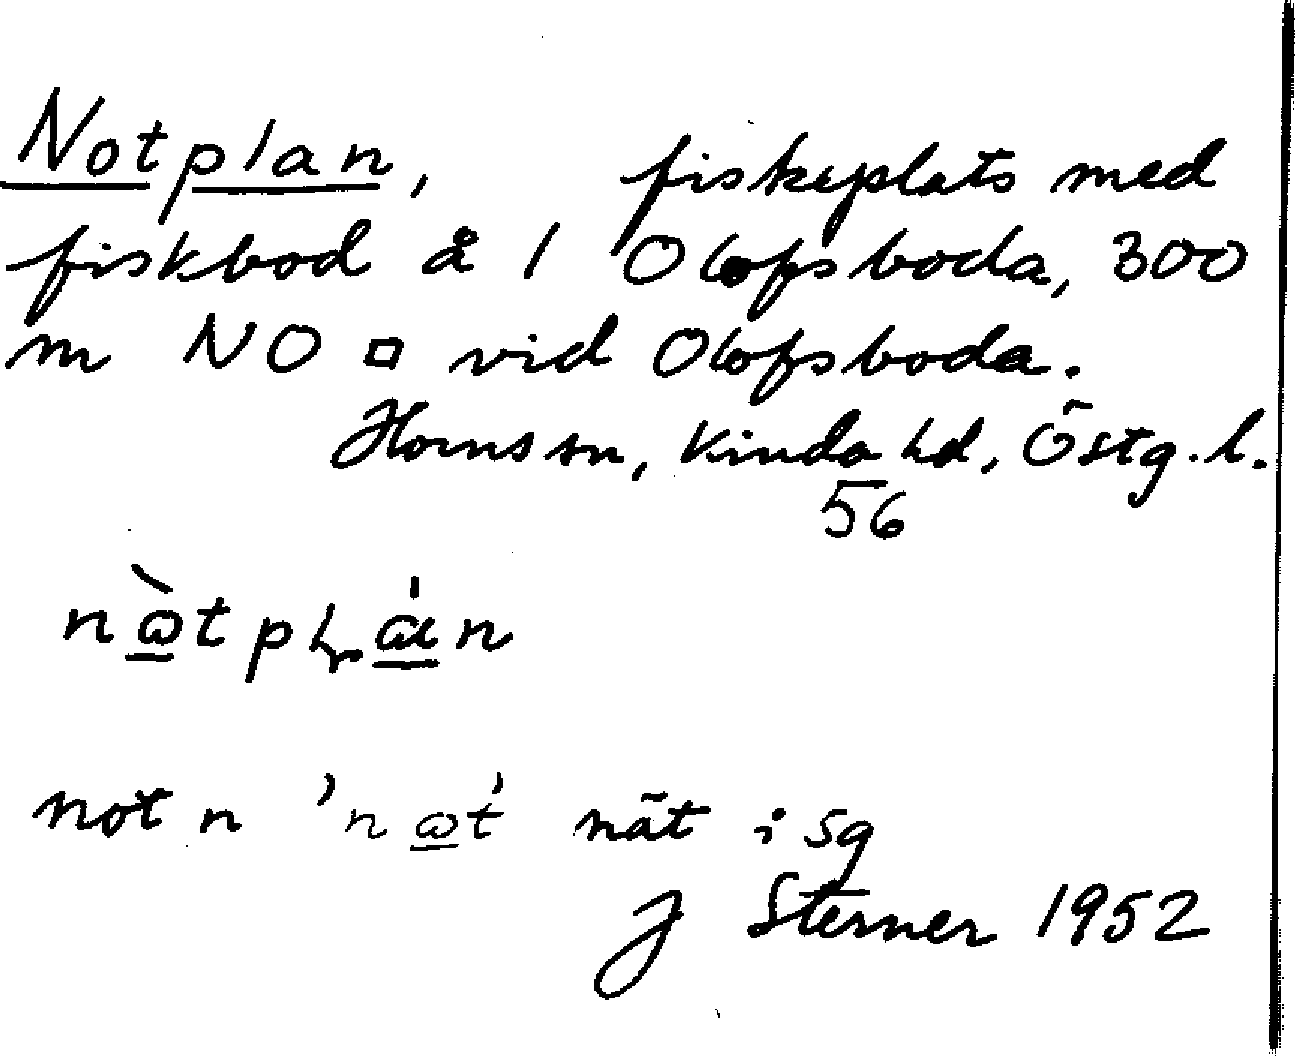 Notplan, fiskeplats med
fiskbod å 1 Olofsboda, 300
m NO □ vid Olofsboda.
Horns sn, Kinda hd, Östg. l.
56
not n nät i sg
J Sterner 1952